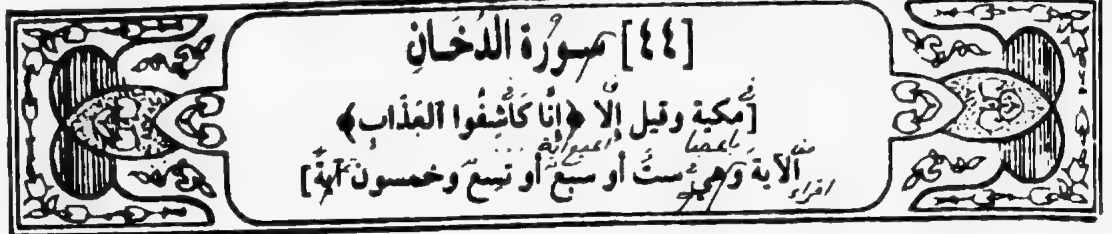 [٤٤] سورة الدُخَانِ
[مكية وقيل إلّا ﴿إِنَّا كَاشِفُوا ٱلعَذَابِ﴾
الآية وَهِيَ ستٌّ أو سبعٌ أو تسعٌ وخمسون آيةً]